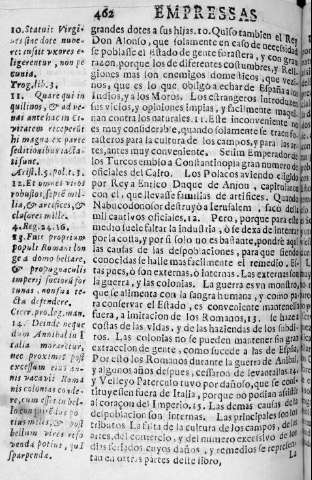 462 EMPRESSAS
10. Statuit Virgi-
nes sine dote nube-
re: iussit vxores e-
ligerentur, non pe
cunia.
Trog. lib. 3.
11. Quare qui in
quilinos, & advenas
ante hac in Ci-
vitatem receperũt
hi magna ex parte
seditionibus iacta-
ti sunt.
Arist. l. 5. pol. c. 3.
12. Et omnes viros
robustos, septẽ mi-
lia, & artifices, &
clusores mille.
4. Reg. 24. 16.
13. Fuit proprium
populi Romani lon
ge à domo bellare,
& propugnaculis
imperij sociorũ for
tunas, non sua te-
cta defendere.
Cicer. pro leg. man.
14. Deinde neque
dum Annibal in I
talia moraretur,
nec proximis post
excessum eius an-
nis vacavit Roma
nis colonias conde-
re, cum esset in bel-
lo
tius miles, & post
bellum vires refo
venda potius, quã
spargenda.
grandes dotes a sus hijas. 10. Quiso tambien el Rey
Don Alonso, que solamente en caso de necesidad
se poblase el Estado de gente forastera, y con gran
razon, porque los de diferentes costumbres, y Reli
giones mas son enemigos domesticos, que vezi-
nos, que es lo que obligò a echar de España a los
Iudios, y a los Moros. Los estrangeros introducen
sus vicios, y opiniones impias, y facilmente maqui
nan contra los naturales. 11. Este inconveniente no
es muy considerable, quando solamente se traen fo
rasteros para la cultura de los campos, y para las ar
tes, antes muy conveniente. Selim Emperador de
los Turcos embio a Constantinopla gran numero de
oficiales del Cairo. Los Polacos aviendo eligido
por Rey a Enrico Duque de Anjou, capitularon
con el, que llevase familias de artifices. Quando
Nabucodonosor destruyò a Ierusalen, sacò de ella
mil cautivos oficiales. 12. Pero, porque para este
medio suele faltar la Industria, ò se dexa de intentar
por la costa, y por si solo no es bastante, pondrè aqui
las causas de las despoblaciones, para que siendo
conocidas se halle mas facilmente el remedio. Es-
tas pues, ò son externas, ò internas. Las externas son
la guerra, y las colonias. La guerra es vn monstro,
que se alimenta con la sangre humana, y como pa-
ra conservar el Estado, es conveniente mantenella
fuera, a imitacion de los Romanos, 13. se haze a
costas de las vidas, y de las haziendas de los subdi-
tos. Las colonias no se pueden mantener sin gran
extraccion de gente, como sucede a las de España.
Por esto los Romanos durante la guerra de Anibal,
y algunos años despues, cessaron de levantallas. 14.
y Velleyo Paterculo tuvo por dañoso, que se con-
stituyesen fuera de Italia, porque no podian asistir
al coraçon del Imperio. 15. Las demas causas de la
despoblacion son internas. Las principales son los
tributos. La falta de la cultura de los campos, de las
artes, del comercio, y del numero excesivo de los
dias feriados, cuyos daños, y remedios se represen
tan en otras partes deste libro,
La